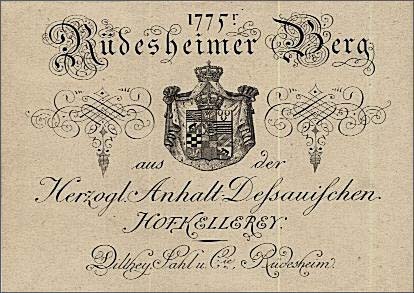 1775r
Rüdesheimer Berg
aus der
Herzogl. Anhalt-Dessauischen
HOFKELLEREY.
Dilthey, Sahl u. Cie. Rüdesheim.